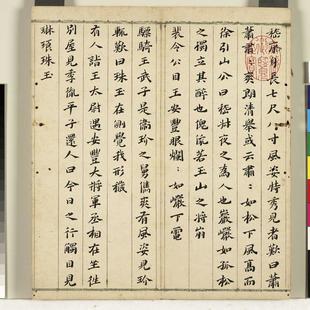 嵇康身長七尺八寸風姿特秀見者歎曰蕭
蕭肅〻爽朗清舉或云肅〻如松下風高而
徐引山公曰嵇叔夜之為人也巖巖如孤松
之獨立其醉也傀俄若玉山之將崩
裴令公目王安豐眼爛〻如巖下電
驃騎王武子是衛玠之舅儁爽有風姿見玠
輒歎曰珠玉在側覺我形穢
有人詣王太尉遇安豐大將軍丞相在坐往
別屋見季胤平子還人曰今日之行觸目見
琳琅珠玉